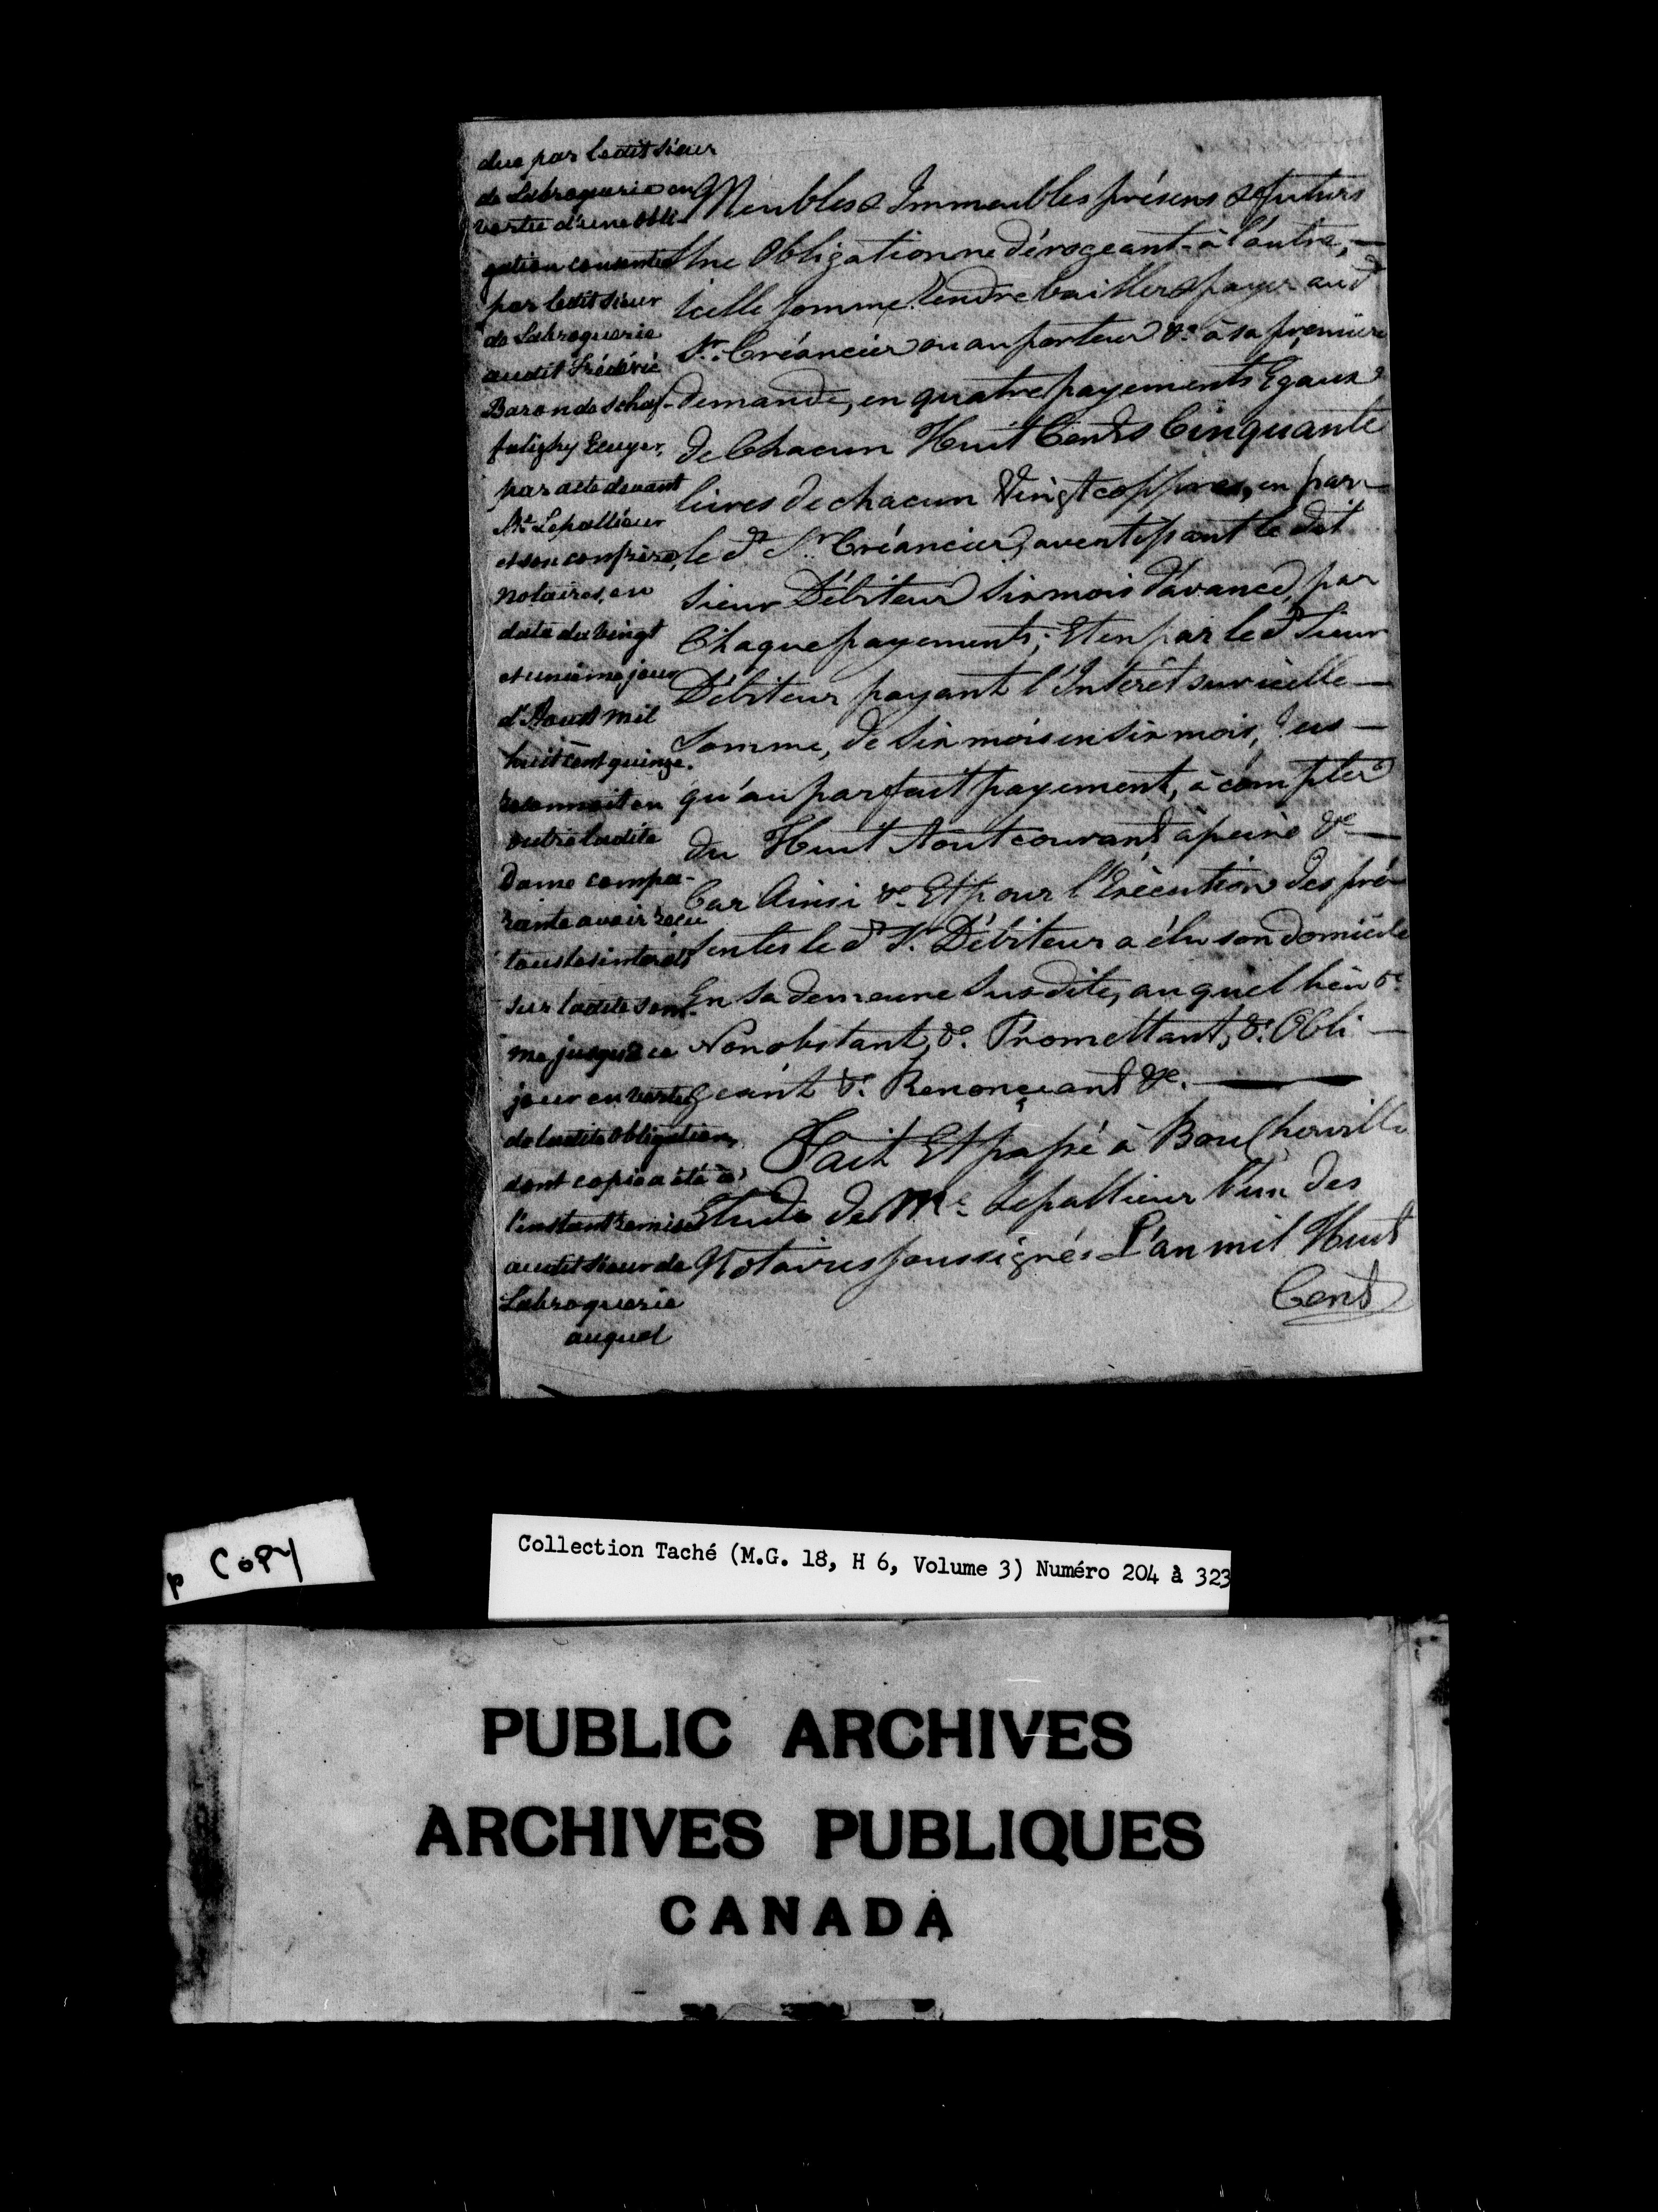 due par ledit Sieur
de Labroquerie en
vertu d'une obli-
gation consentie
par ledit Sieur
de Labroquerie
audit Frédéric
Baron de Schaf-
falizky Ecuyer,
par acte devant
Me. Lepallieur
et son confrère,
Notaires, en
date du vingt
et unième jour
d'Aoust mil
huit cent quinze.
reconnoit en
outre ladite
Dame compa-
rante avoir reçu
tous les interets
sur ladite som-
me jusqu'à ce
jour en vertu
de ladite Obligation,
dont copie a été à
l'instant remise
audit Sieur de
Labroquerie
auquel
Meubles & Immeubles présens & futurs
Une Obligation ne dérogeant à l'autre,
icelle somme rendre bailler & payer aud
Sr. Créancier ou au porteur &c à sa première
demande, en quatre payements Egaux
de Chacun Huit Cents Cinquante
livres de chacun Vingt coppres, en par
le dt Sr. Créancier, avertissant le dit
Sieur Débiteur six mois d'avance, par
Chaque payements; Et en par le dt Sieur
Débiteur payant l'Intérêt sur icelle
Somme, de six mois en six mois, jus
qu'au parfait payement, à compter
du Huit Aout courant à peine &c
Car Ainsi &c. Et pour l'Exécution des pré
sentes le dt Sr. Débiteur a élu son domicile
En sa demeure Susdite, auquel lieu &c
Nonobstant, &c. Promettant, &c. Obli
geant &c. Renonçant &c.
Fait Et passé à Boucherville
Etude de Me. Lepallieur l'un des
Notaires soussignés L'an mil Huit
Cent
p COPY
Collection Taché (M.G. 18, H 6, Volume 3) Numéro 204 à 323
PUBLIC ARCHIVES
ARCHIVES PUBLIQUES
CANADA